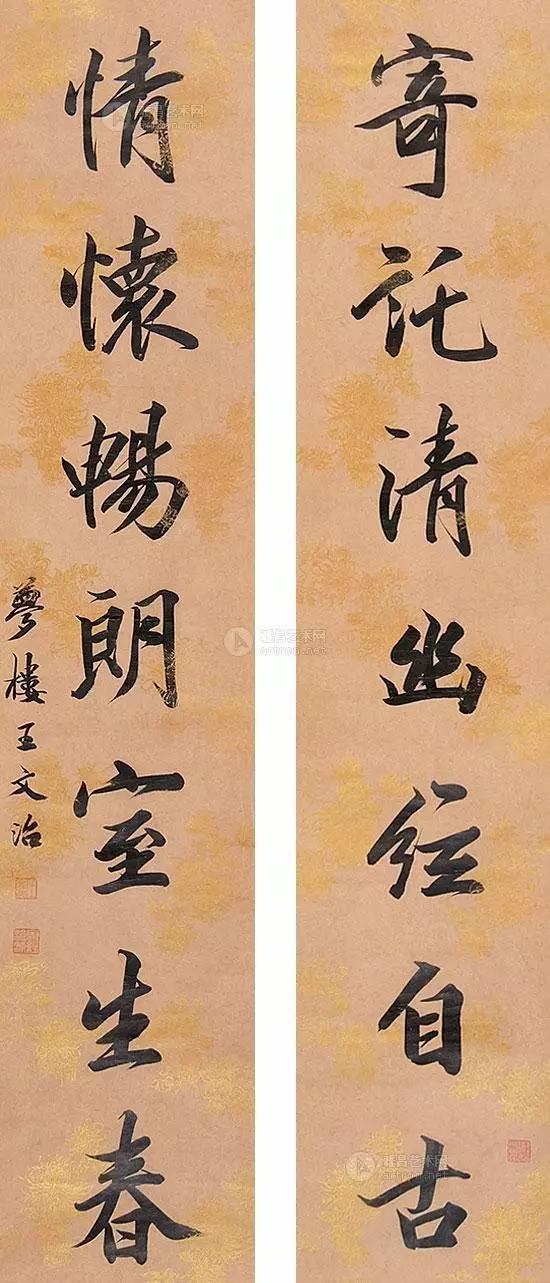 寄託清幽絃自古
情懷暢朗室生春
夢樓王文治
雅昌艺术网
artron.net